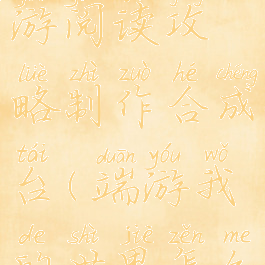 游阅读攻
lüè zhì zuò hé chéng
略制作合成
tái duān yóu wǒ
台(端游我
de shì jiè zěn me
的世界怎么